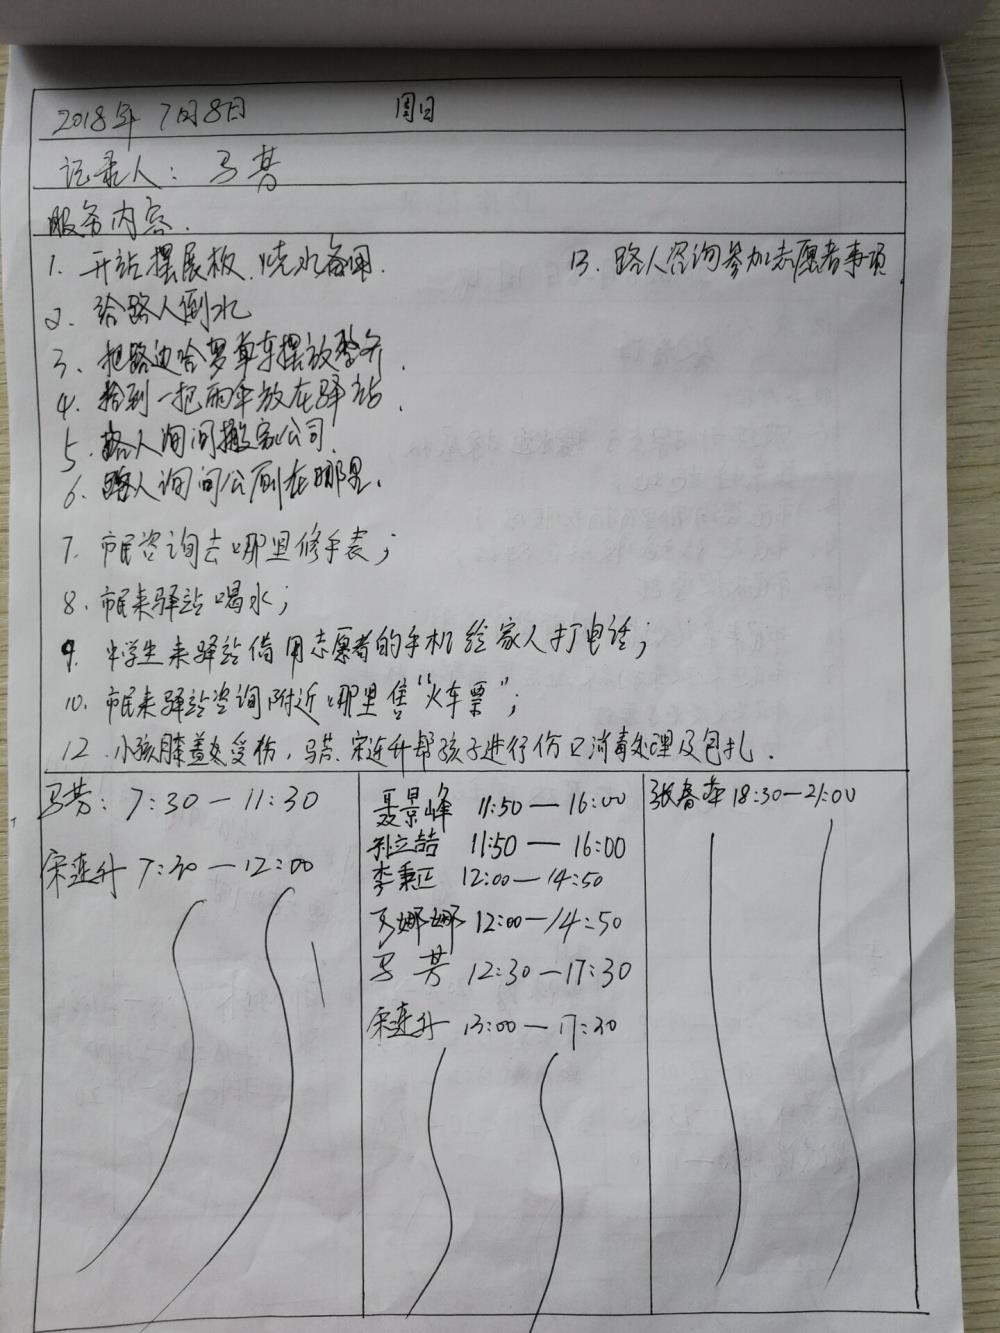 2018年 7月8日 周日
记录人: 马芳
服务内容.
1. 开站摆展板、烧水备用.
13. 路人咨询参加志愿者事项
2. 给路人倒水
3. 把路边哈罗单车摆放整齐.
4. 拾到一把雨伞放在驿站.
5. 路人询问搬家公司.
6. 路人询问公厕在哪里.
7. 市民咨询去哪里修手表;
8. 市民来驿站喝水;
9. 中学生来驿站借用志愿者的手机给家人打电话;
10. 市民来驿站咨询附近哪里售“火车票”;
12. 小孩膝盖处受伤,马芳、宋连升帮孩子进行伤口消毒处理及包扎.
马芳: 7:30—11:30
宋连升 7:30—12:00
聂景峰 11:50—16:00
立喆 11:50—16:00
李秉正 12:00—14:50
马娜娜 12:00—14:50
马芳 12:30—17:30
宋连升 13:00—17:30
张春苹 18:30—21:00